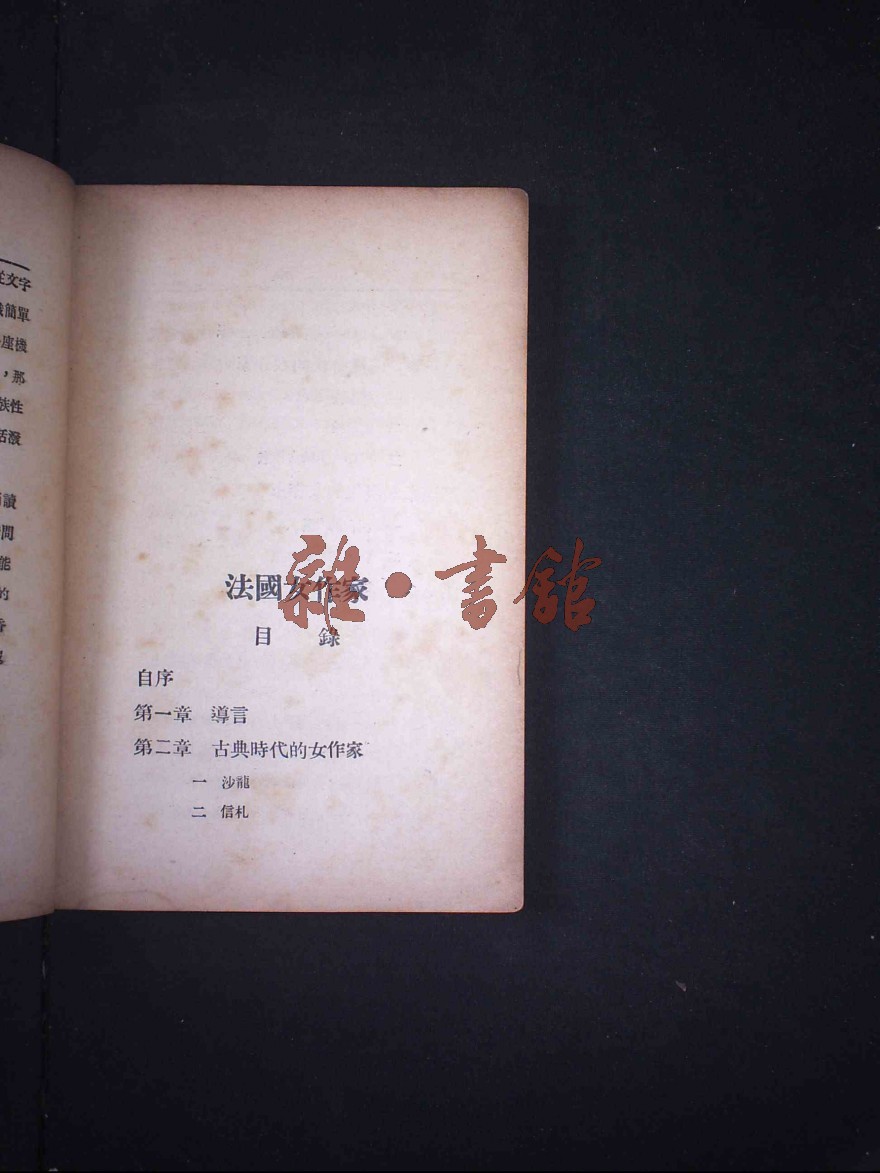 從文字
簡單
座機
，那
族性
活潑
讀
問
能
的
香
法國女作家
雜·書館
目錄
自序
第一章 導言
第二章 古典時代的女作家
一 沙龍
二 信札